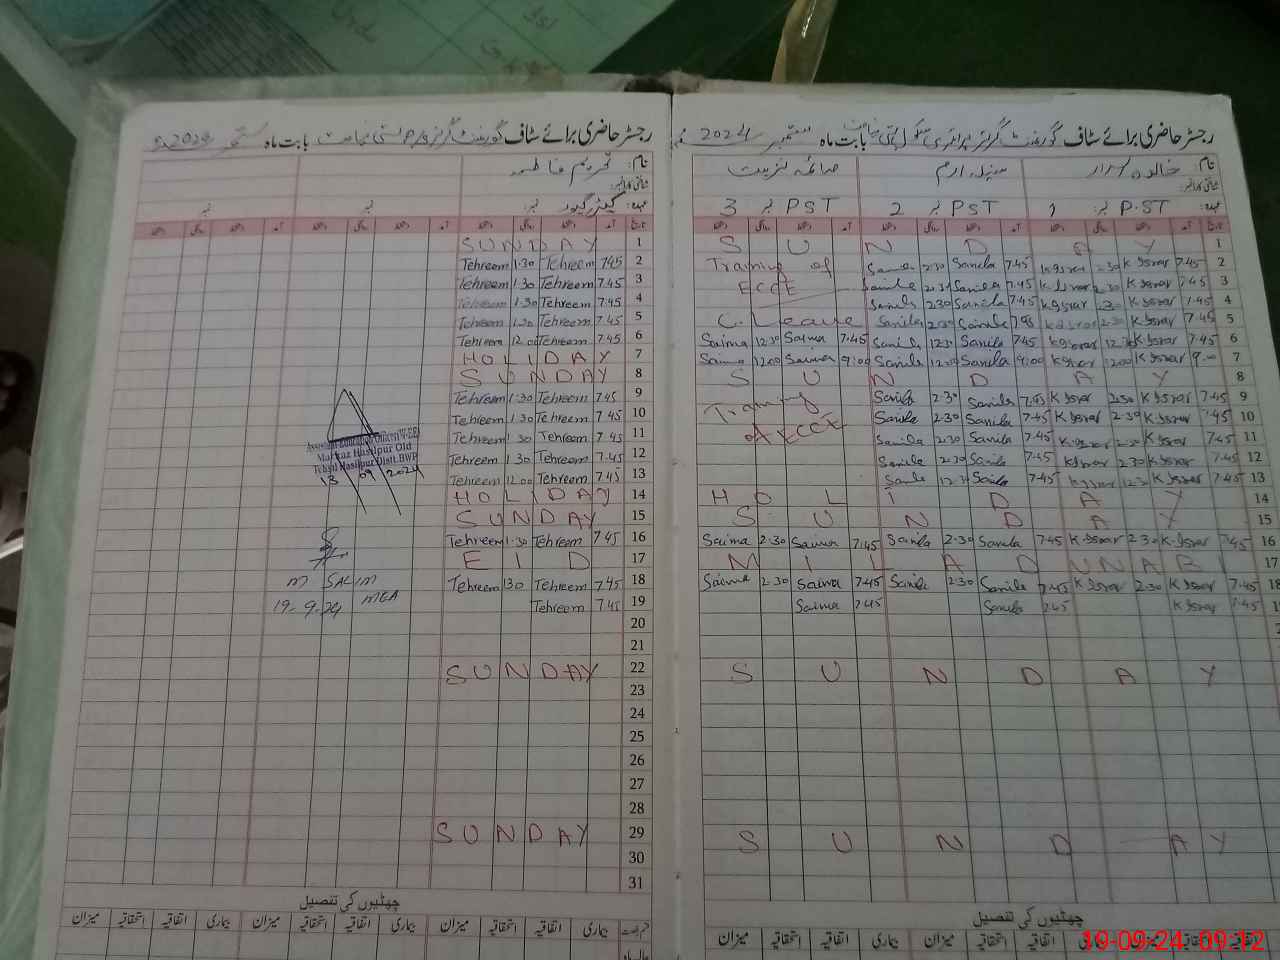 رجسٹر حاضری برائے سٹاف گورنمنٹ گرلز پرائمری سکول بستی بابت ماہ ستمبر 2024
نام: خالدہ اسرار صائمہ
عہدہ: P.ST نمبر 1 PST نمبر 2 PST نمبر 3
1 S U N D A Y
2 Training of Sanila 2:30 Sanila 7:45 K Israr 2:30 K Israr 7:45
3 ECCE Sanila 2:30 Sanila 7:45 K Israr 2:30 K Israr 7:45
4 Sanila 2:30 Sanila 7:45 K Israr 2:30 K Israr 7:45
5 C. Leave Sanila 2:30 Sanila 7:45 K Israr 2:30 K Israr 7:45
6 Saima 12:30 Saima 7:45 Sanila 12:30 Sanila 7:45 K Israr 12:30 K Israr 7:45
7 Saima 12:00 Saima 9:00 Sanila 12:00 Sanila 9:00 K Israr 12:00 K Israr 9:00
8 S U N D A Y
9 Training Sanila 2:30 Sanila 7:45 K Israr 2:30 K Israr 7:45
10 of ECCE Sanila 2:30 Sanila 7:45 K Israr 2:30 K Israr 7:45
11 Sanila 2:30 Sanila 7:45 K Israr 2:30 K Israr 7:45
12 Sanila 2:30 Sanila 7:45 K Israr 2:30 K Israr 7:45
13 Sanila 12:30 Sanila 7:45 K Israr 12:30 K Israr 7:45
14 H O L I D A Y
15 S U N D A Y
16 Saima 2:30 Saima 7:45 Sanila 2:30 Sanila 7:45 K Israr 2:30 K Israr 7:45
17 M I L A D U N A B I
18 Saima 2:30 Saima 7:45 Sanila 2:30 Sanila 7:45 K Israr 2:30 K Israr 7:45
Saima 7:45 Sanila 7:45 K Israr 7:45
S U N D A Y
S U N D A Y
چھٹیوں کی تفصیل
میزان استحقاقیہ اتفاقیہ بیماری میزان استحقاقیہ اتفاقیہ
رجسٹر حاضری برائے سٹاف گورنمنٹ گرلز بابت ماہ ستمبر 2024
نام: تحریم فاطمہ
عہدہ: کیئر گیور نمبر:
1 SUNDAY
2 Tehreem 1:30 Tehreem 7:45
3 Tehreem 1:30 Tehreem 7:45
4 Tehreem 1:30 Tehreem 7:45
5 Tehreem 1:30 Tehreem 7:45
6 Tehreem 12:00 Tehreem 7:45
7 HOLIDAY
8 SUNDAY
9 Tehreem 1:30 Tehreem 7:45
10 Tehreem 1:30 Tehreem 7:45
11 Tehreem 1:30 Tehreem 7:45
12 Tehreem 1:30 Tehreem 7:45
13 Tehreem 12:00 Tehreem 7:45
14 HOLIDAY
15 SUNDAY
16 Tehreem 1:30 Tehreem 7:45
17 E I D
18 Tehreem 1:30 Tehreem 7:45
19 Tehreem 7:45
20
21
22 SUNDAY
23
24
25
26
27
28
29 SUNDAY
30
31
Markaz Hasilpur Old
Tehsil Hasilpur Distt. BWP
13 09 2024
M SALIM
MEA
19-9-24
چھٹیوں کی تفصیل
میزان استحقاقیہ اتفاقیہ بیماری میزان استحقاقیہ اتفاقیہ بیماری میزان استحقاقیہ اتفاقیہ بیماری
19-09-24 09:12